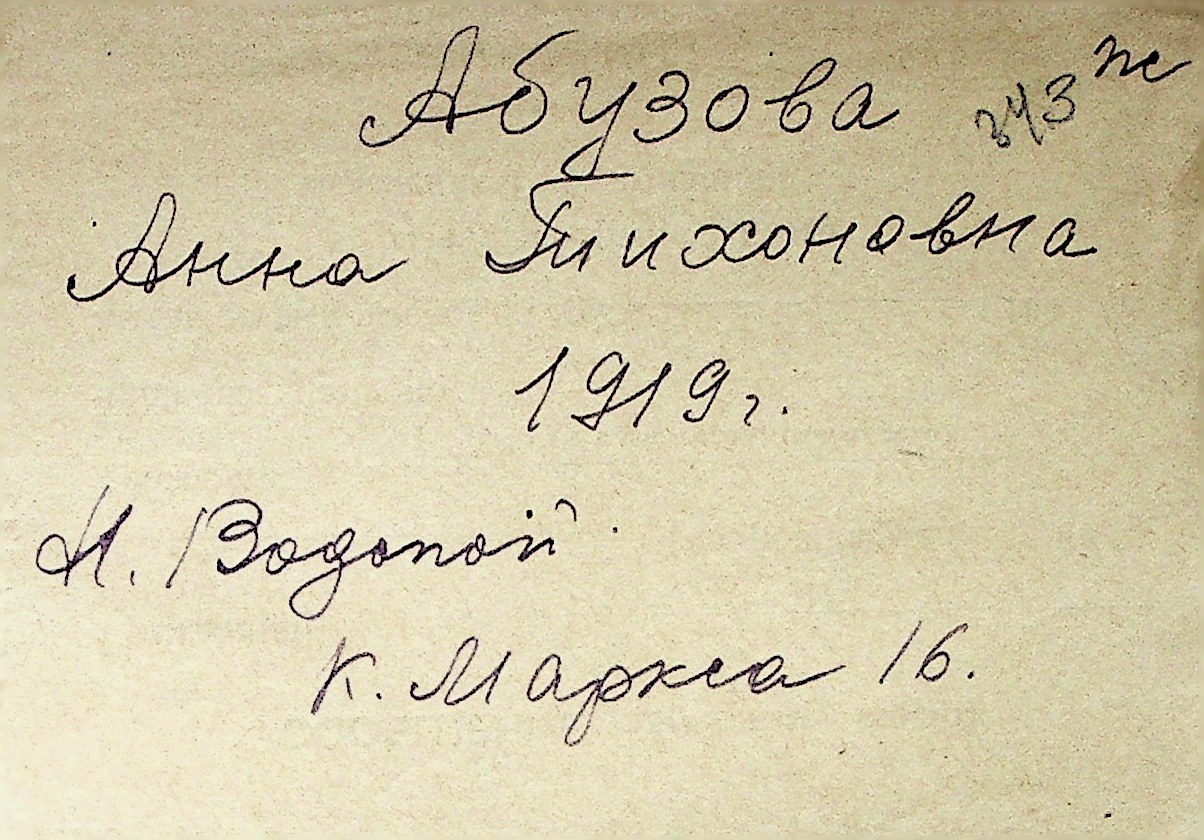 Абузова
Анна Тихоновна
1919 г.
Н. Водопой
К. Маркса 16.